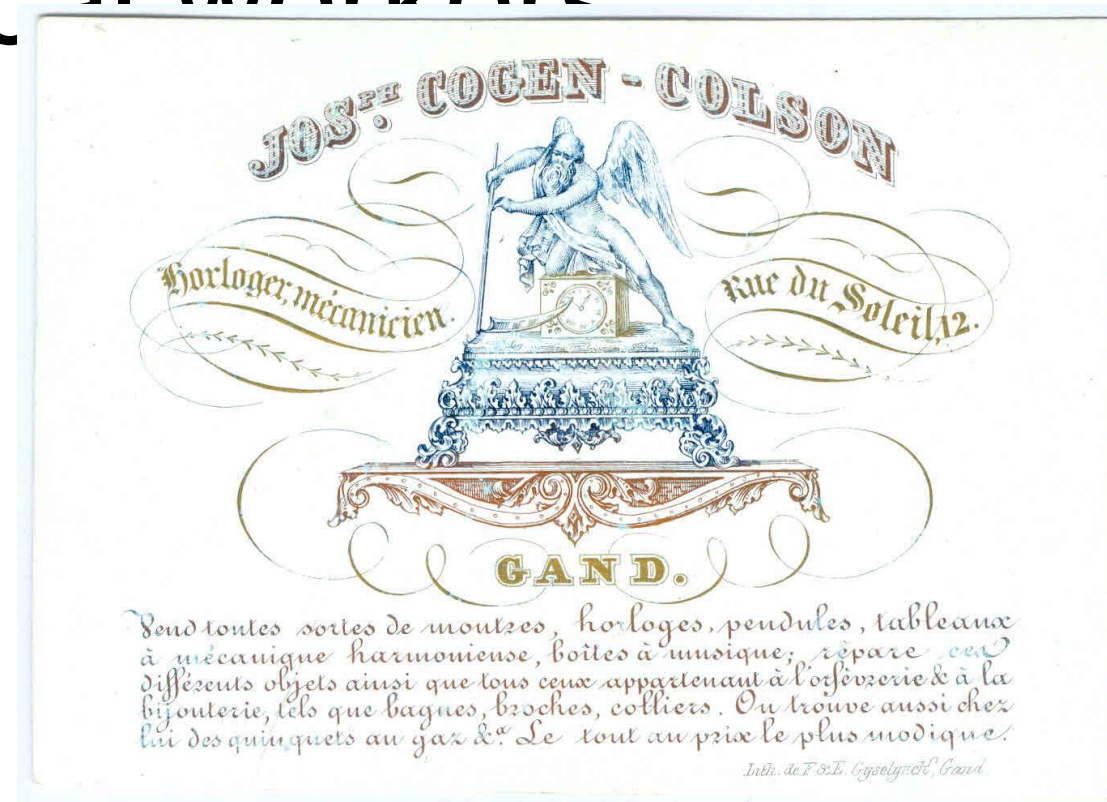 JOS.PH COGEN - COLSON
Horloger, mécanicien.
Rue du Soleil, 12.
GAND.
Vend toutes sortes de montres, horloges, pendules, tableaux
à mécanique harmonieuse, boîtes à musique; répare ces
différents objets ainsi que tous ceux appartenant à l'orfèvrerie & à la
bijouterie, tels que bagues, broches, colliers. On trouve aussi chez
lui des quinquets au gaz &.a Le tout au prix le plus modique.
Lith. de F. & E. Gyselynck, Gand.